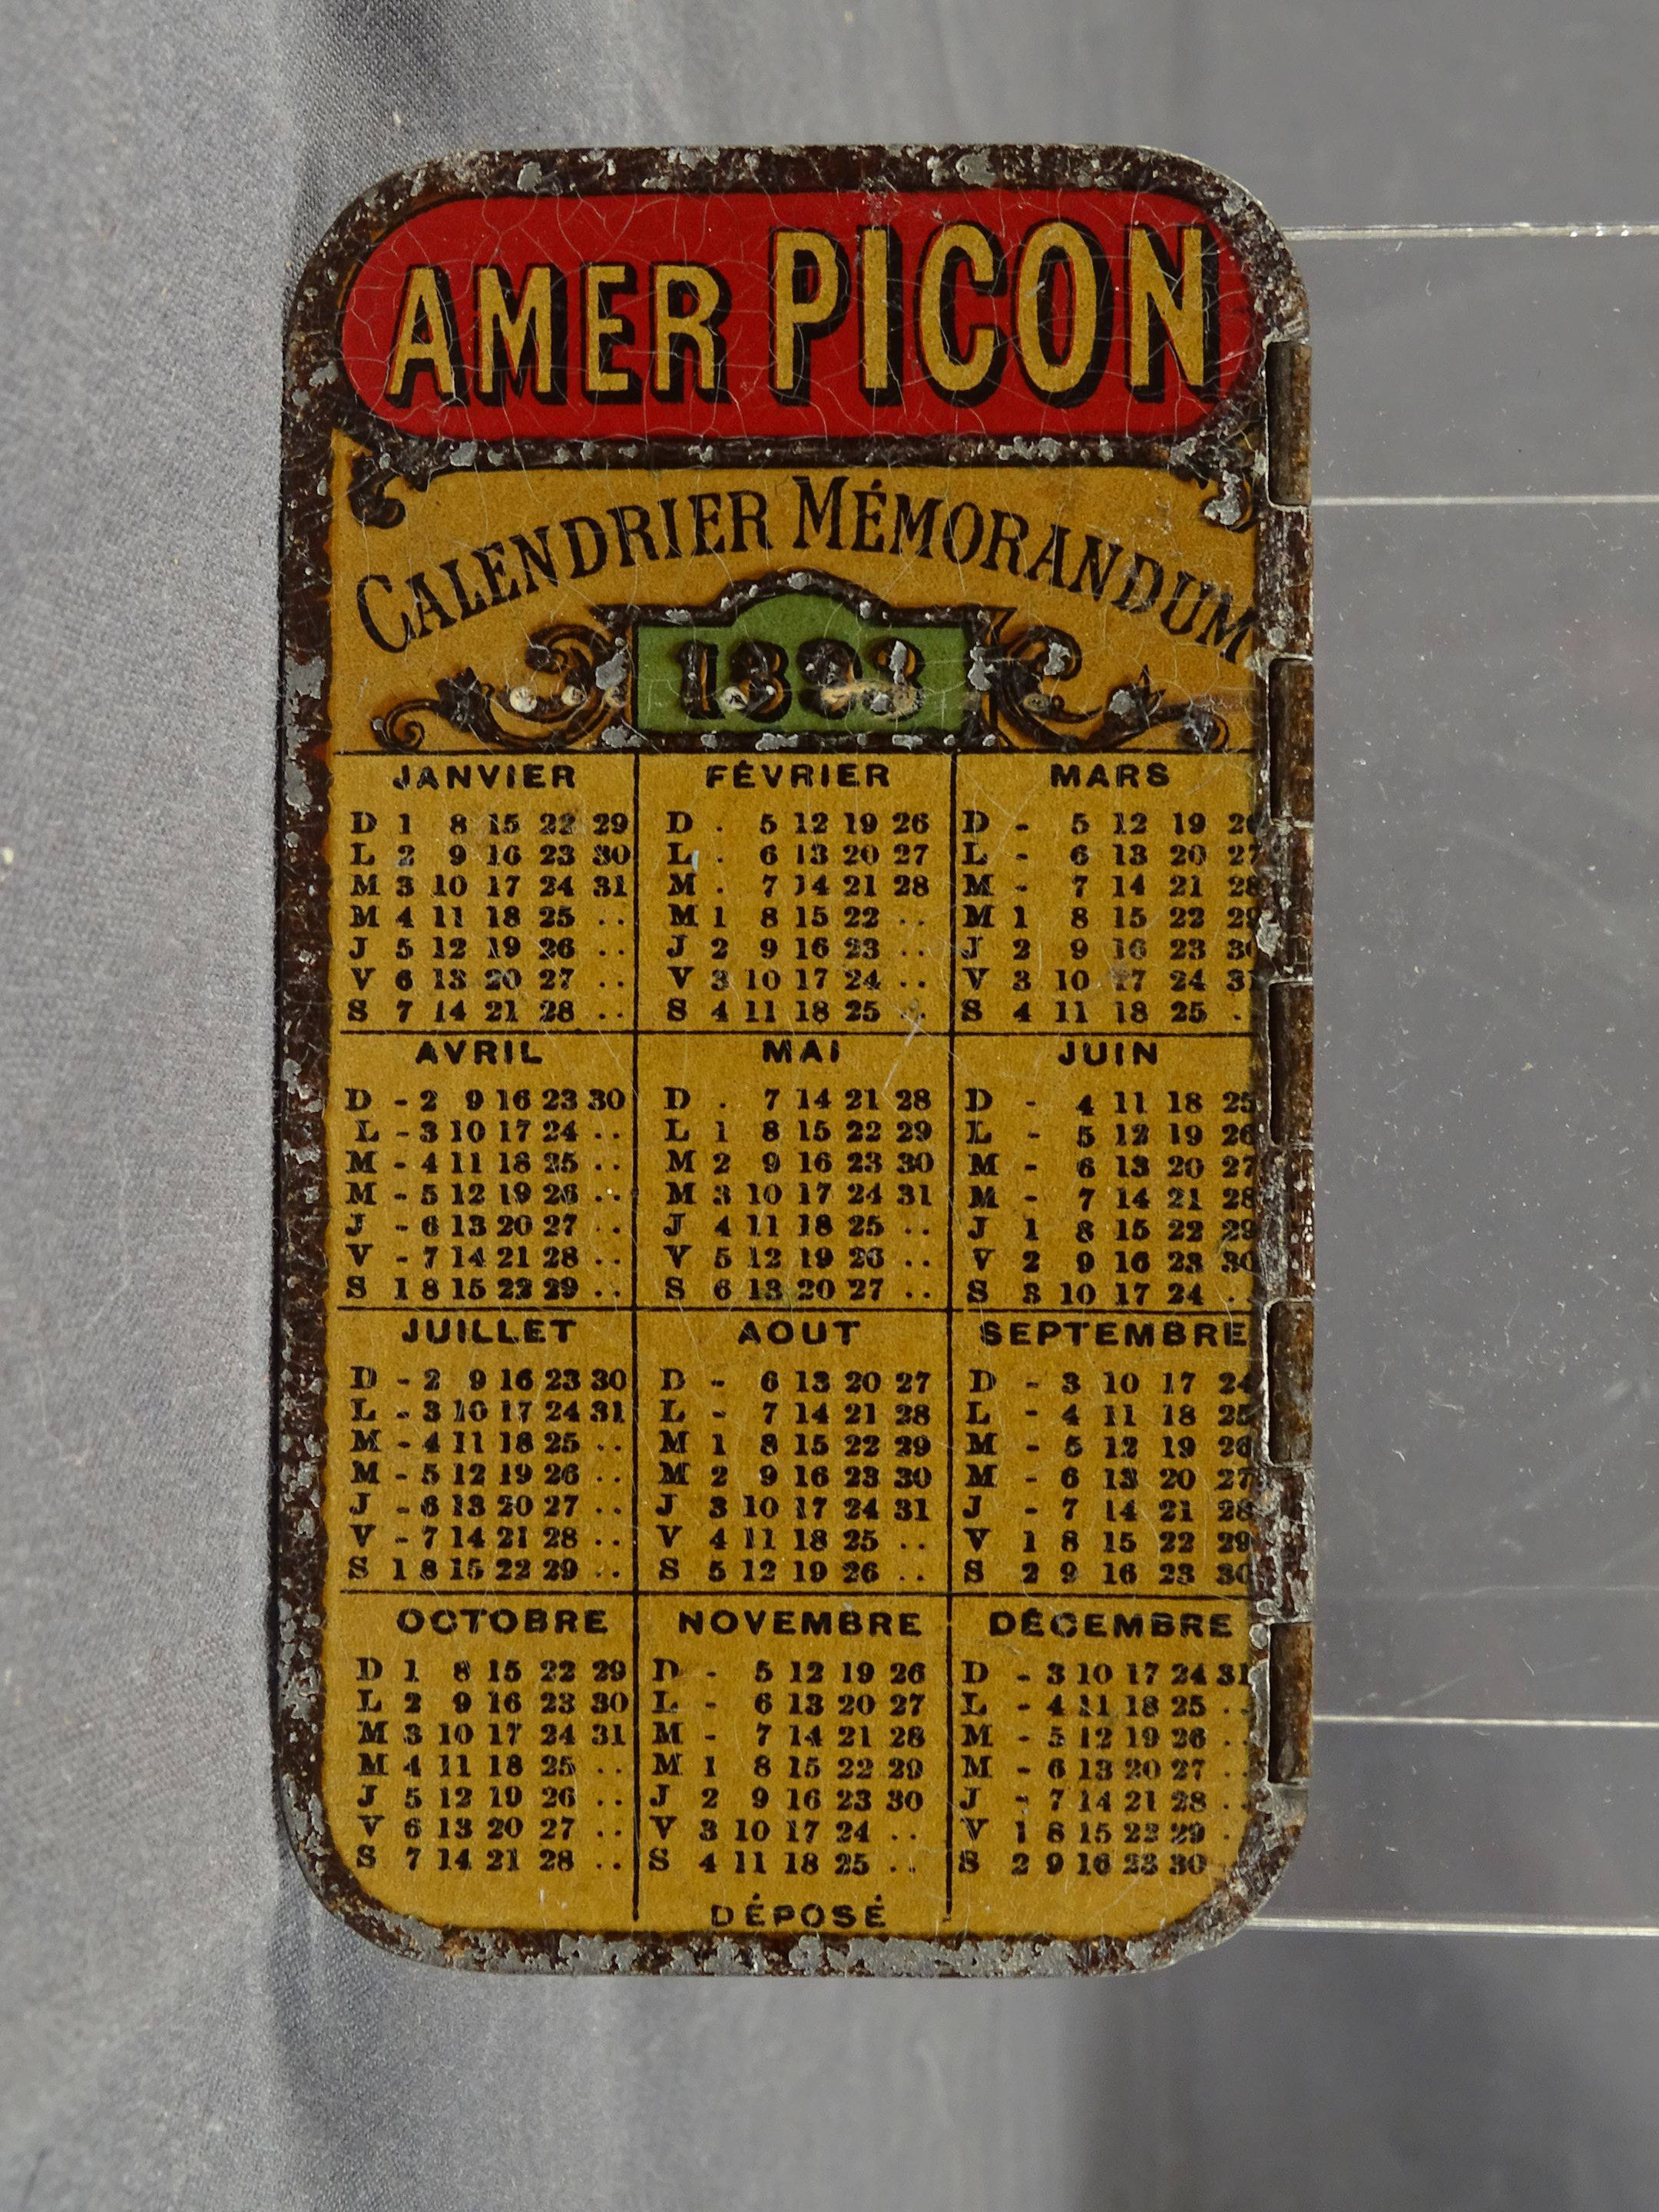 AMER PICON
CALENDRIER MÉMORANDUM
1893
JANVIER
D 1 8 15 22 29
L 2 9 16 23 30
M 3 10 17 24 31
M 4 11 18 25 . .
J 5 12 19 26 . .
V 6 13 20 27 . .
S 7 14 21 28 . .
FÉVRIER
D . 5 12 19 26
L . 6 13 20 27
M . 7 14 21 28
M 1 8 15 22 . .
J 2 9 16 23 . .
V 3 10 17 24 . .
S 4 11 18 25 . .
MARS
D - 5 12 19 26
L - 6 13 20 27
M - 7 14 21 28
M 1 8 15 22 29
J 2 9 16 23 30
V 3 10 17 24 31
S 4 11 18 25 .
AVRIL
D - 2 9 16 23 30
L - 3 10 17 24 . .
M - 4 11 18 25 . .
M - 5 12 19 26 . .
J - 6 13 20 27 . .
V - 7 14 21 28 . .
S 1 8 15 22 29 . .
MAI
D . 7 14 21 28
L 1 8 15 22 29
M 2 9 16 23 30
M 3 10 17 24 31
J 4 11 18 25 . .
V 5 12 19 26 . .
S 6 13 20 27 . .
JUIN
D - 4 11 18 25
L - 5 12 19 26
M - 6 13 20 27
M - 7 14 21 28
J 1 8 15 22 29
V 2 9 16 23 30
S 3 10 17 24 . .
JUILLET
D - 2 9 16 23 30
L - 3 10 17 24 31
M - 4 11 18 25 . .
M - 5 12 19 26 . .
J - 6 13 20 27 . .
V - 7 14 21 28 . .
S 1 8 15 22 29 . .
AOUT
D - 6 13 20 27
L - 7 14 21 28
M 1 8 15 22 29
M 2 9 16 23 30
J 3 10 17 24 31
V 4 11 18 25 . .
S 5 12 19 26 . .
SEPTEMBRE
D - 3 10 17 24
L - 4 11 18 25
M - 5 12 19 26
M - 6 13 20 27
J - 7 14 21 28
V 1 8 15 22 29
S 2 9 16 23 30
OCTOBRE
D 1 8 15 22 29
L 2 9 16 23 30
M 3 10 17 24 31
M 4 11 18 25 . .
J 5 12 19 26 . .
V 6 13 20 27 . .
S 7 14 21 28 . .
NOVEMBRE
D - 5 12 19 26
L - 6 13 20 27
M - 7 14 21 28
M 1 8 15 22 29
J 2 9 16 23 30
V 3 10 17 24 . .
S 4 11 18 25 . .
DÉCEMBRE
D - 3 10 17 24 31
L - 4 11 18 25 . .
M - 5 12 19 26 . .
M - 6 13 20 27 . .
J - 7 14 21 28 . .
V 1 8 15 22 29 .
S 2 9 16 23 30
DÉPOSÉ